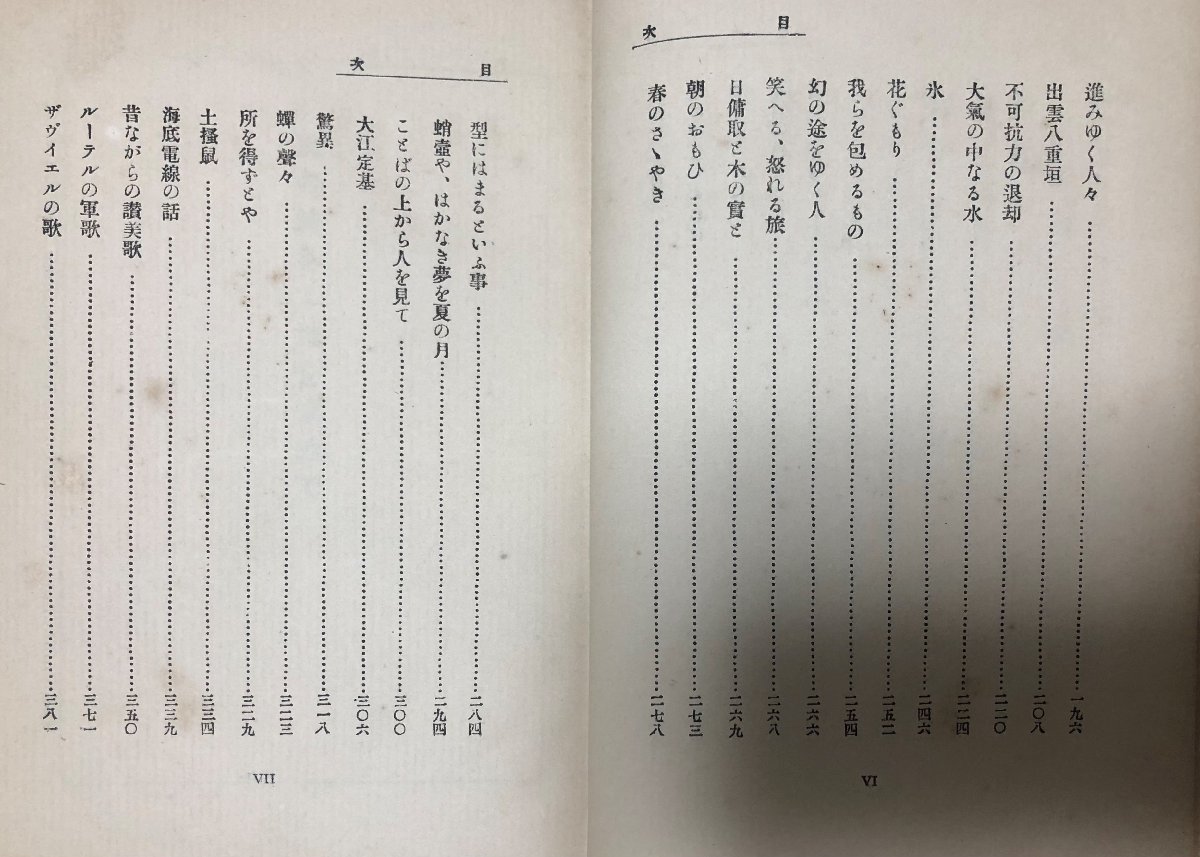 目次
進みゆく人々 一九六
出雲八重垣 二〇八
不可抗力の退却 二二〇
大氣の中なる水 二二四
氷 二四六
花ぐもり 二五二
我らを包めるもの 二五四
幻の途をゆく人 二六六
笑へる、怒れる旅 二六八
日傭取と木の實と 二六九
朝のおもひ 二七三
春のさゝやき 二七八
VI
目次
型にはまるといふ事 二八四
蛸壺や、はかなき夢を夏の月 二九四
ことばの上から人を見て 三〇〇
大江定基 三〇六
驚異 三一八
蟬の聲々 三二三
所を得すとや 三二九
土搔鼠 三三四
海底電線の話 三三九
昔ながらの讃美歌 三五〇
ルーテルの軍歌 三七一
ザヴィエルの歌 三八一
VII